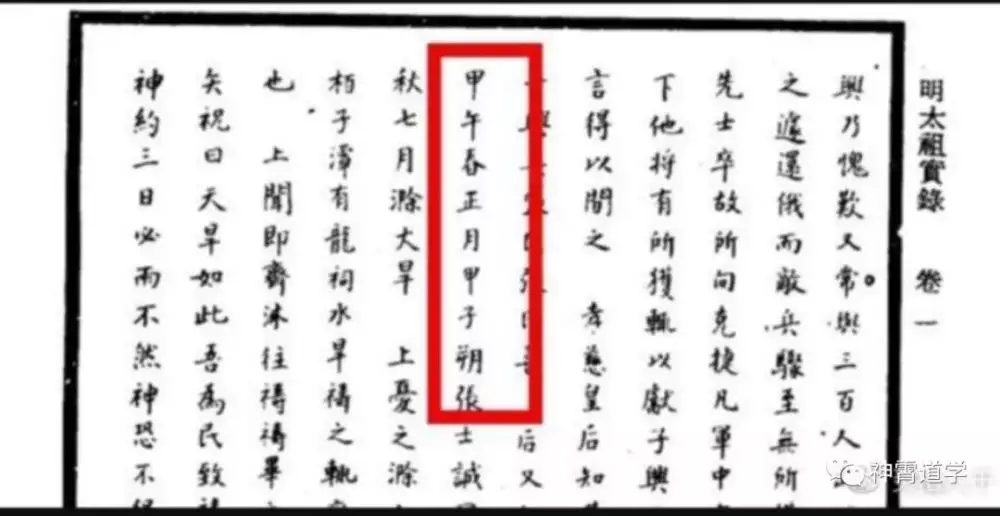 明太祖實錄 卷一
興乃愧歎又常與三百人
之遽還俄而敵兵驟至無所
先士卒故所向克捷凡軍中
下他將有所獲輒以獻子興
言得以間之 孝慈皇后知
后又
甲午春正月甲子朔張士誠
秋七月滁大旱 上憂之滁
栢子潭有龍祠水旱禱之輒
也 上聞即齊沐往禱禱畢
矢祝曰天旱如此吾為民致
神約三日必雨不然神恐不
神霄道学